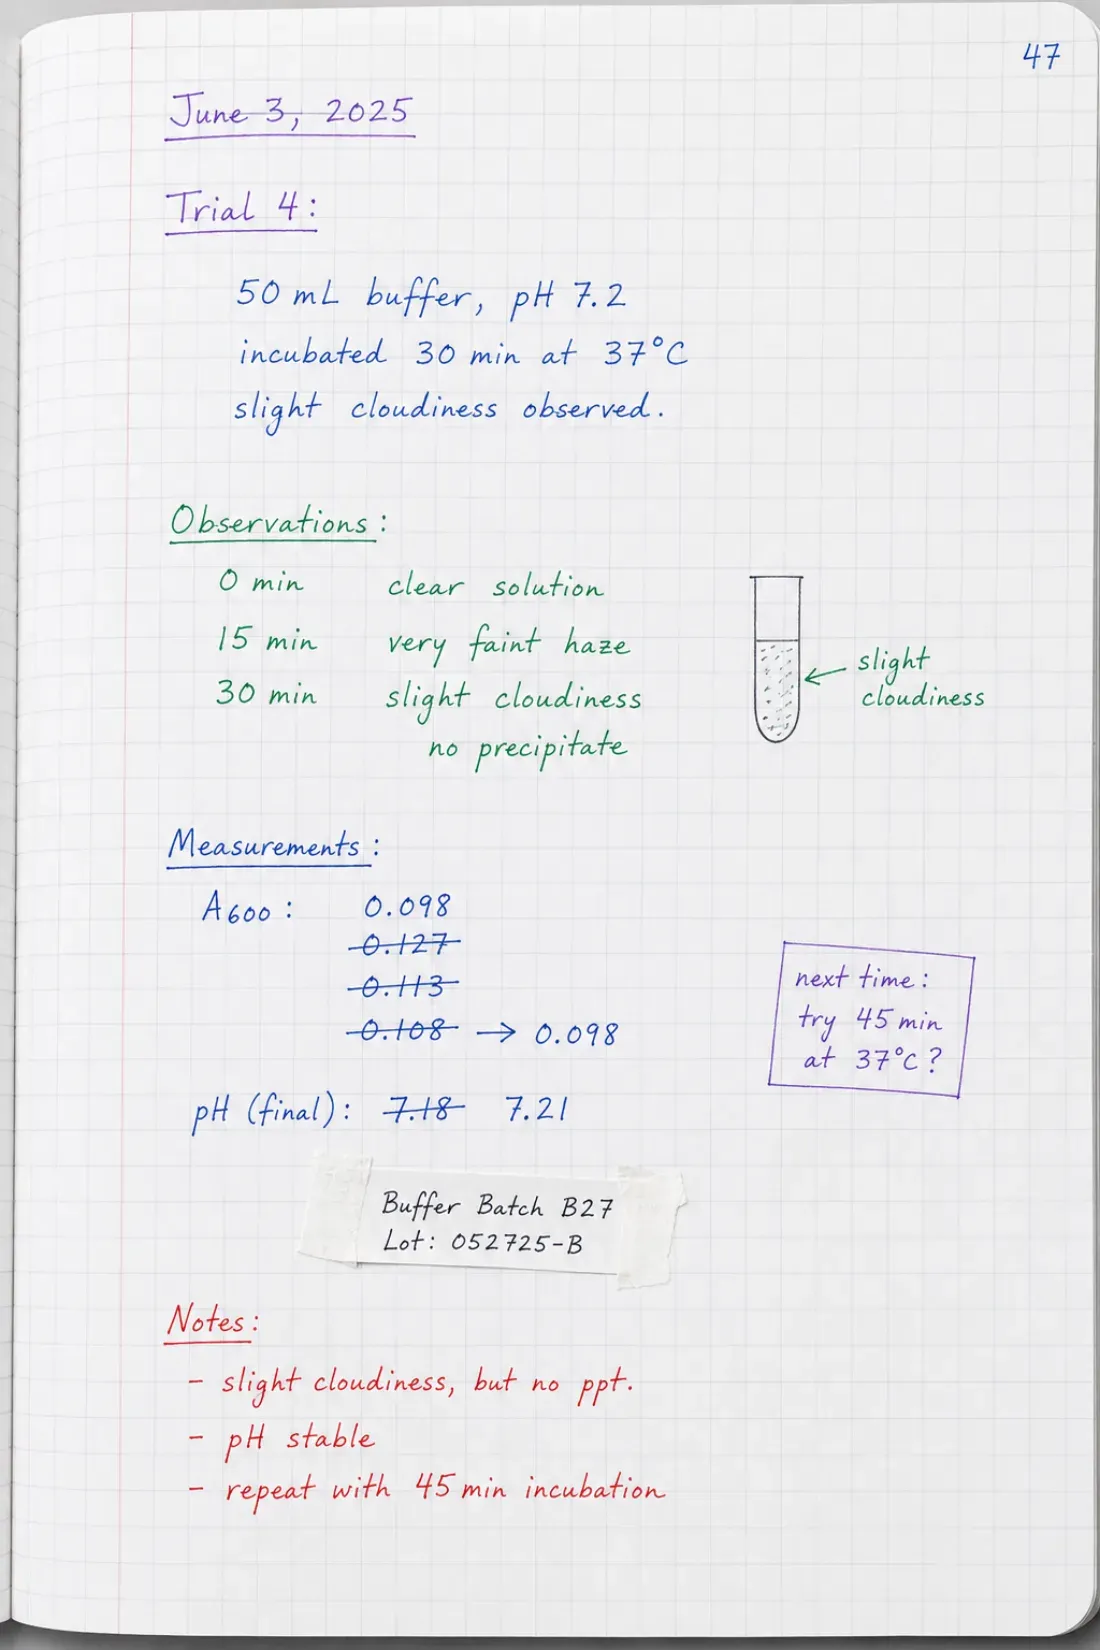 47
June 3, 2025
Trial 4:
50 mL buffer, pH 7.2
incubated 30 min at 37°C
slight cloudiness observed.
Observations:
0 min clear solution
15 min very faint haze
30 min slight cloudiness
no precipitate
slight
cloudiness
Measurements:
A600: 0.098
0.127
0.113
0.108 → 0.098
pH (final): 7.18 7.21
next time:
try 45 min
at 37°C?
Buffer Batch B27
Lot: 052725-B
Notes:
- slight cloudiness, but no ppt.
- pH stable
- repeat with 45 min incubation